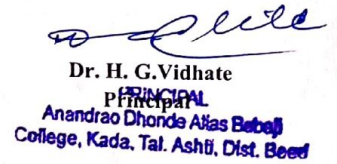 Dr. H. G.Vidhate
Principal
PRINCIPAL
Anandrao Dhonde Alias Babaji
College, Kada, Tal. Ashti, Dist. Beed